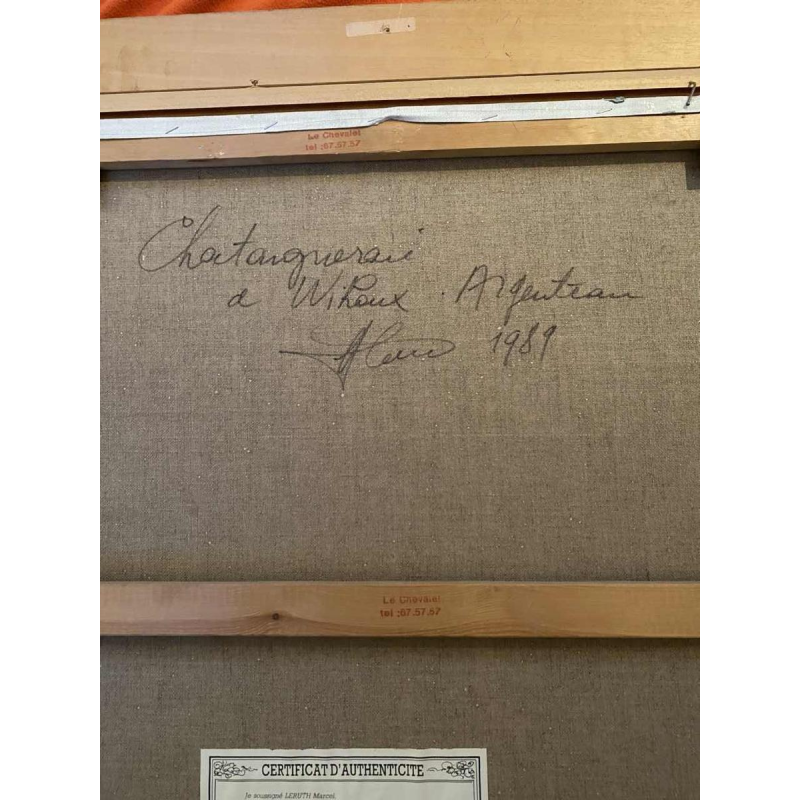 Le Chevalet
tel :67.57.57
Chataigneraie
a Wihoux . Argenteau
1989
Le Chevalet
tel :67.57.57
CERTIFICAT D'AUTHENTICITE
Je soussigné LERUTH Marcel.